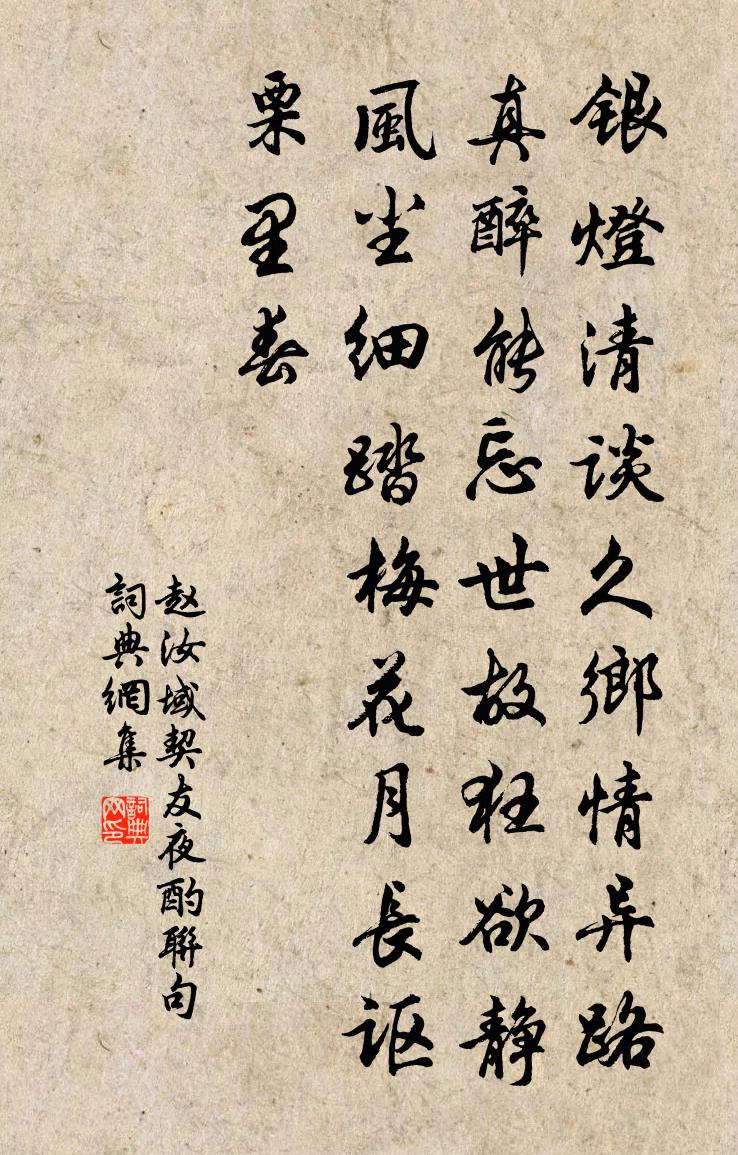 銀燈清談久鄉情异路
真醉能忘世故狂欲靜
風尘细踏梅花月長讴
栗里春
赵汝域契友夜酌聯句
詞典網集
詞典
网印